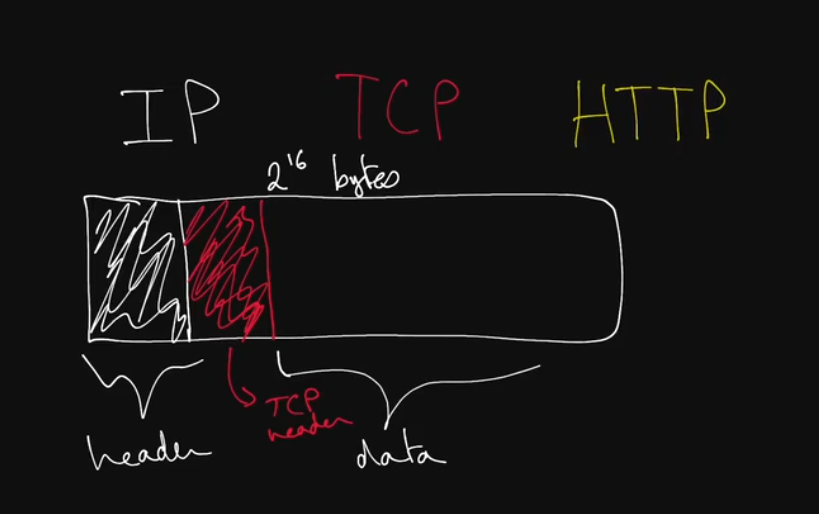 IP TCP HTTP
2¹⁶ bytes
TCP
header
header
data